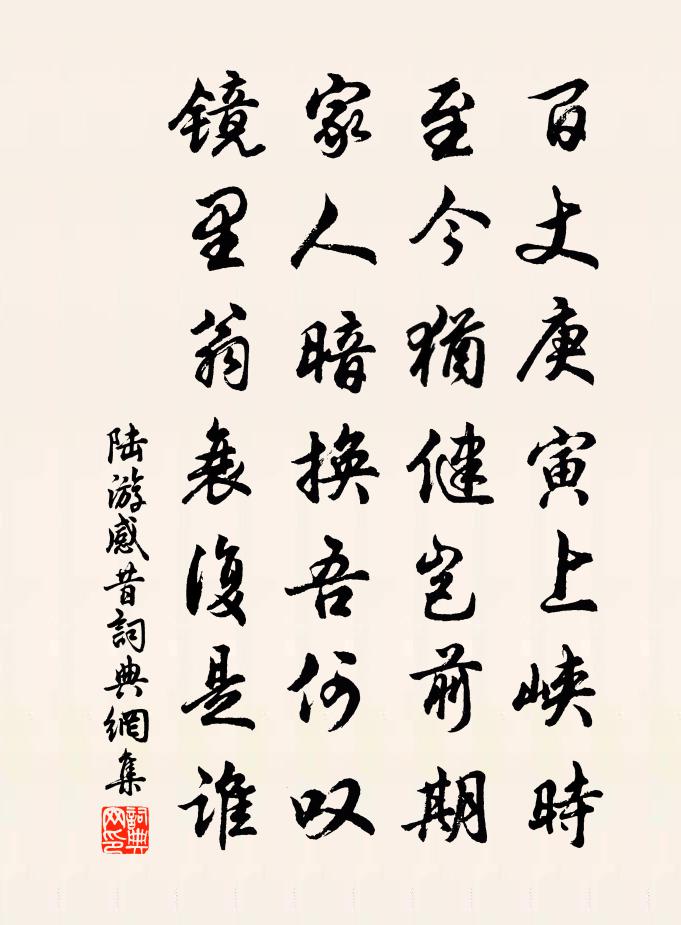 百丈庚寅上峡時
至今猶健豈前期
家人暗換吾何叹
镜里翁衰復是谁
陆游感昔詞典網集
詞典网印